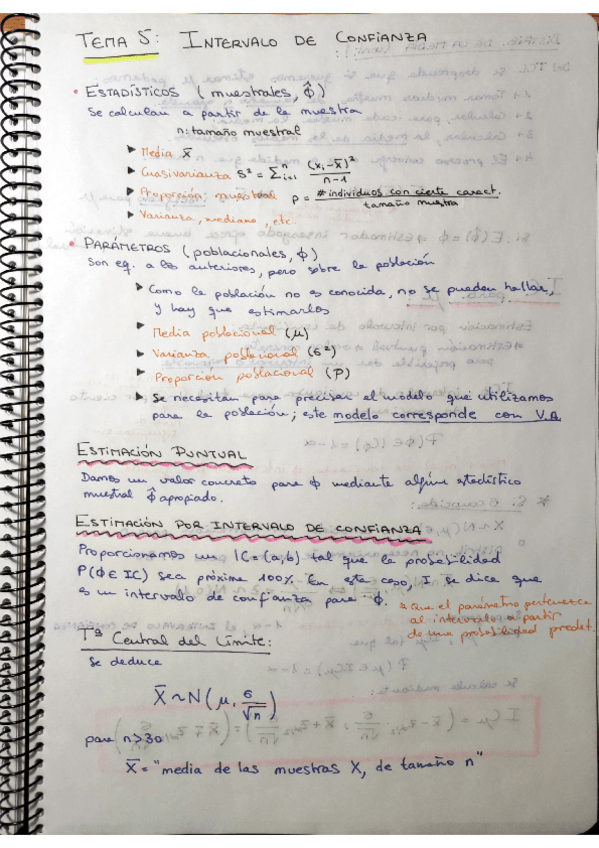 TEMA 5: INTERVALO DE CONFIANZA
• ESTADÍSTICOS (muestrales, ϕ̂)
Se calculan a partir de la muestra
n: tamaño muestral
▸ Media x̄
▸ Cuasivarianza s² = Σⁿᵢ₌₁ (xᵢ-x̄)² / n-1
▸ Proporción muestral p = # individuos con cierta caract. / tamaño muestra
▸ Varianza, mediana, etc.
• PARÁMETROS (poblacionales, ϕ)
Son eq. a los anteriores, pero sobre la población
▸ Como la población no es conocida, no se pueden hallar,
y hay que estimarlos
▸ Media poblacional (μ)
▸ Varianza poblacional (σ²)
▸ Proporción poblacional (P)
▸ Se necesitan para precisar el modelo que utilizamos
para la población; este modelo corresponde con V.A.
ESTIMACIÓN PUNTUAL
Damos un valor concreto para ϕ mediante algún estadístico
muestral ϕ̂ apropiado.
ESTIMACIÓN POR INTERVALO DE CONFIANZA
Proporcionamos un IC=(a,b) tal que la probabilidad
P(ϕ∈IC) sea próxima 100%. En este caso, I se dice que
es un intervalo de confianza para ϕ.
* Que el parámetro pertenezca
al intervalo a partir
de una probabilidad predet.
Tª Central del Límite:
Se deduce
X̄ ~ N(μ, σ/√n)
para n≥30
X̄ = "media de las muestras X, de tamaño n"